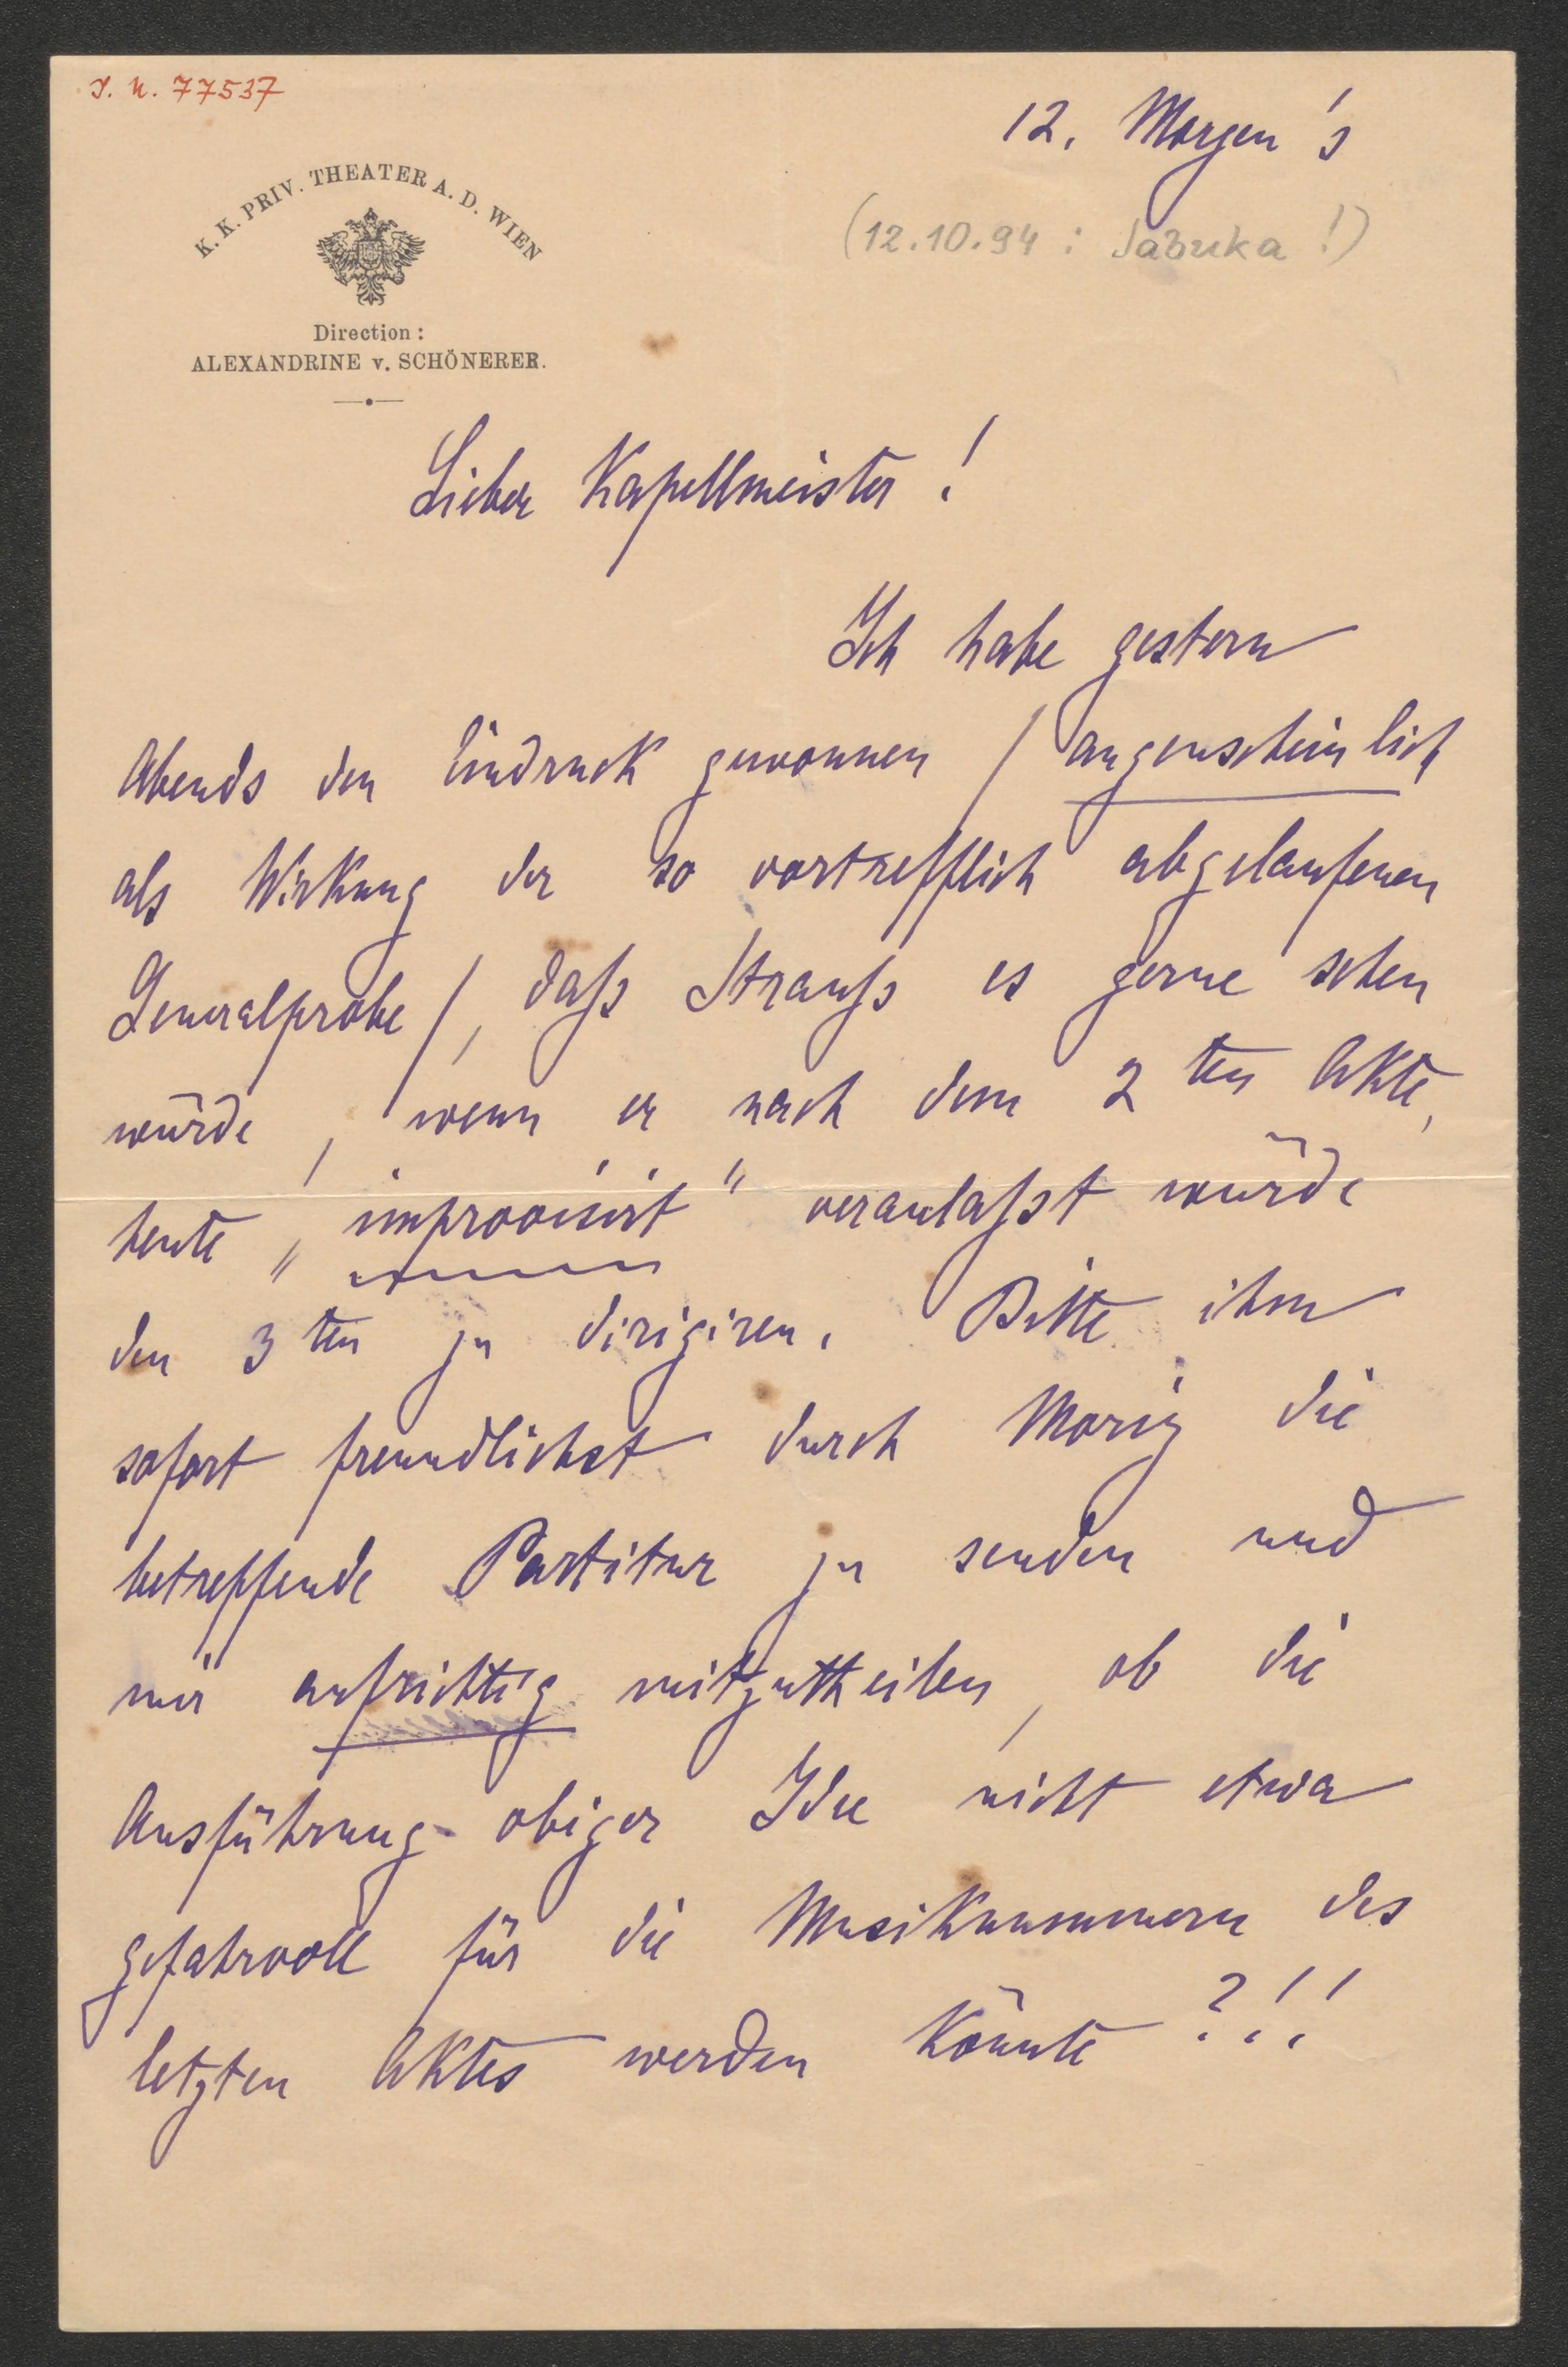 I. N. 77537
12. Morgen's
(12.10.94 : Jabuka!)
K. K. PRIV. THEATER A. D. WIEN
Direction :
ALEXANDRINE v. SCHÖNERER.
Lieber Kapellmeister !
Ich habe gestern
Abends den Eindruck gewonnen / augenscheinlich
als Wirkung der so vortrefflich abgelaufenen
Generalprobe /, daſs Strauſs es gerne sehen
würde, wenn er nach dem 2ten Akte,
heute „improvisirt" veranlaſst würde
den 3ten zu dirigiren. Bitte ihm
sofort freundlichst durch Moriz die
betreffende Partitur zu senden und
mir aufrichtig mitzutheilen, ob die
Ausführung obiger Idee nicht etwa
gefahrvoll für die Musiknummern des
letzten Aktes werden könnte ?!!